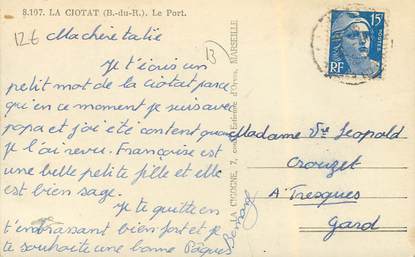 8.197. LA CIOTAT (B.-du-R.). Le Port.
12 €
Ma chère tatie
Je t'écris un
petit mot de la ciotat parce
qu'en ce moment je suis avec
papa et j'ai été content quand
je l'ai revu. Françoise est
une belle petite fille et elle
est bien sage.
Je te quitte en
t'embrassant bien fort et je
te souhaite une bonne Pâques
Bernard
LA CIGOGNE, 7, cours Estienne d'Orves, MARSEILLE
15F
POSTES
RF
Madame Vve Leopold
Crouzet
A Tresques
Gard